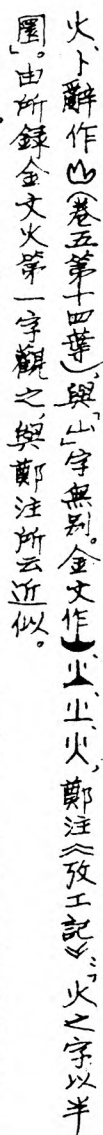 火、卜辭作（卷五第十四葉），與「山」字無别。金文作、、、火，鄭注《攷工記》：「火之字以半
圜」。由所録金文火第一字觀之，與鄭注所云近似。